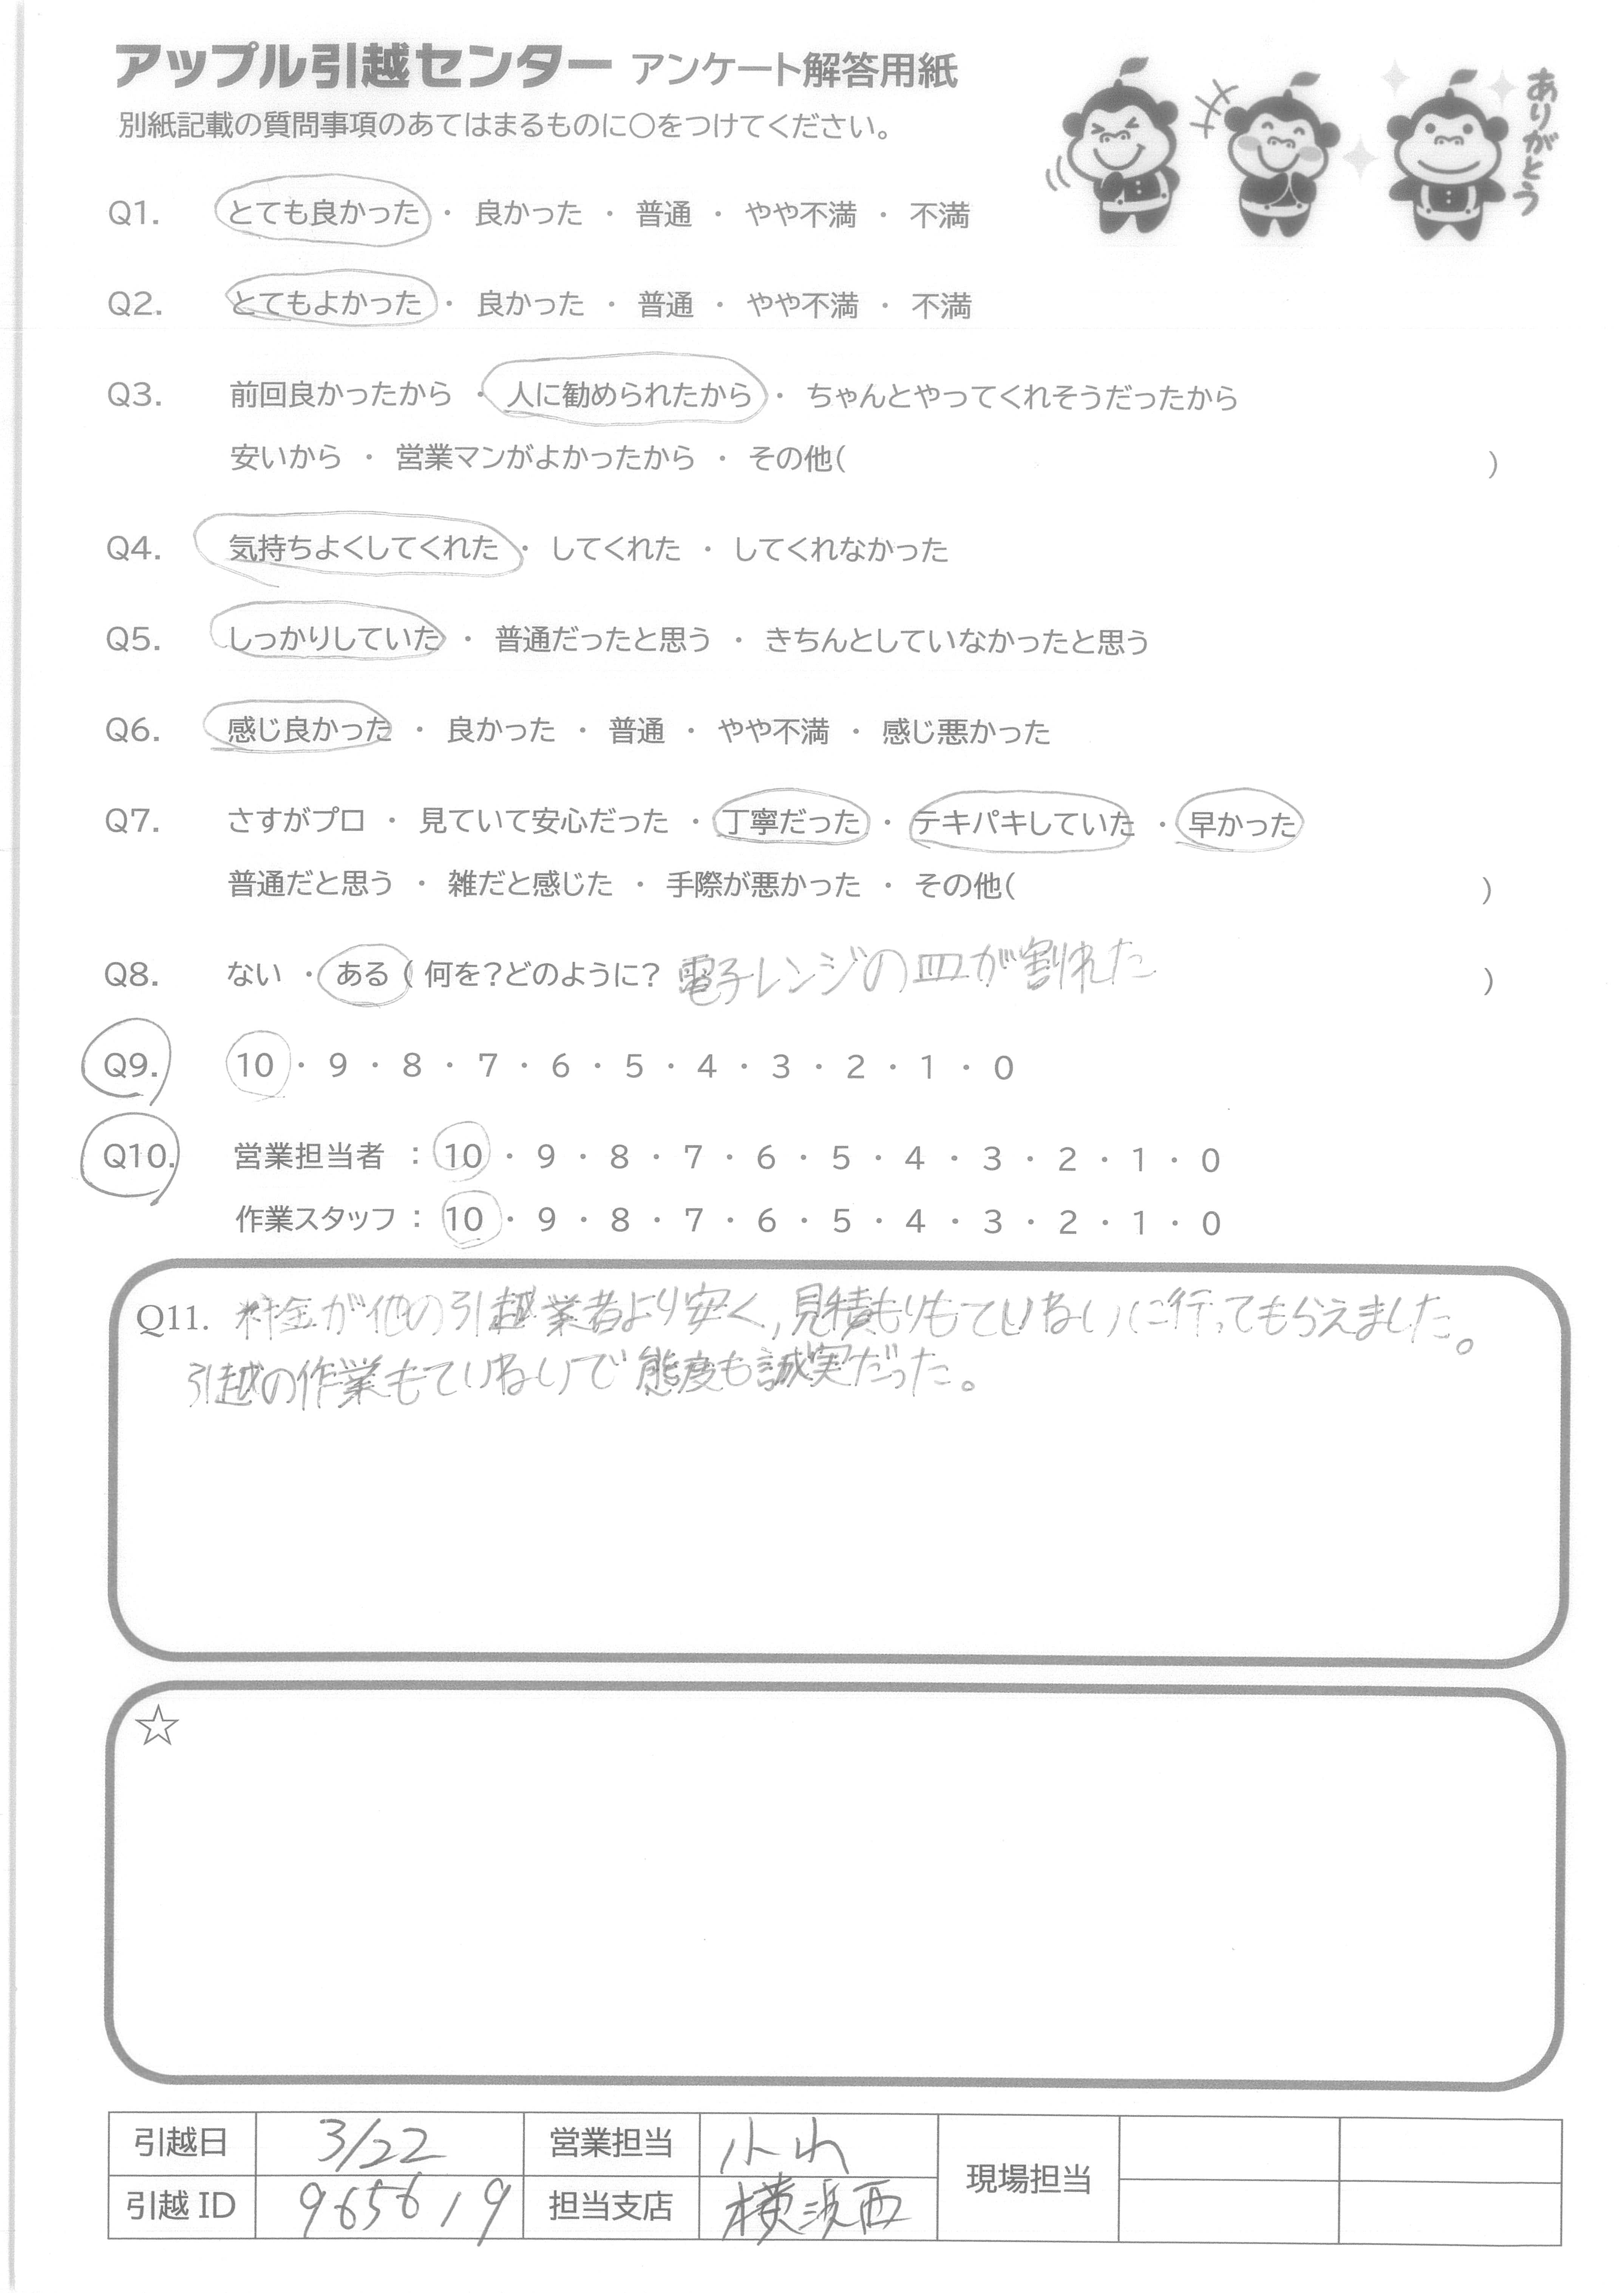 アップル引越センター アンケート解答用紙
別紙記載の質問事項のあてはまるものに○をつけてください。
ありがとう
Q1. とても良かった ・ 良かった ・ 普通 ・ やや不満 ・ 不満
Q2. とてもよかった ・ 良かった ・ 普通 ・ やや不満 ・ 不満
Q3. 前回良かったから ・ 人に勧められたから ・ ちゃんとやってくれそうだったから
安いから ・ 営業マンがよかったから ・ その他( )
Q4. 気持ちよくしてくれた ・ してくれた ・ してくれなかった
Q5. しっかりしていた ・ 普通だったと思う ・ きちんとしていなかったと思う
Q6. 感じ良かった ・ 良かった ・ 普通 ・ やや不満 ・ 感じ悪かった
Q7. さすがプロ ・ 見ていて安心だった ・ 丁寧だった ・ テキパキしていた ・ 早かった
普通だと思う ・ 雑だと感じた ・ 手際が悪かった ・ その他( )
Q8. ない ・ ある ( 何を?どのように? 電子レンジの皿が割れた )
Q9. 10 ・ 9 ・ 8 ・ 7 ・ 6 ・ 5 ・ 4 ・ 3 ・ 2 ・ 1 ・ 0
Q10. 営業担当者 : 10 ・ 9 ・ 8 ・ 7 ・ 6 ・ 5 ・ 4 ・ 3 ・ 2 ・ 1 ・ 0
作業スタッフ : 10 ・ 9 ・ 8 ・ 7 ・ 6 ・ 5 ・ 4 ・ 3 ・ 2 ・ 1 ・ 0
Q11. 料金が他の引越業者より安く,見積もりもていねいに行ってもらえました。
引越の作業もていねいで態度も誠実だった。
☆
引越日 3/22 営業担当 現場担当
引越ID 965619 担当支店 横浜西